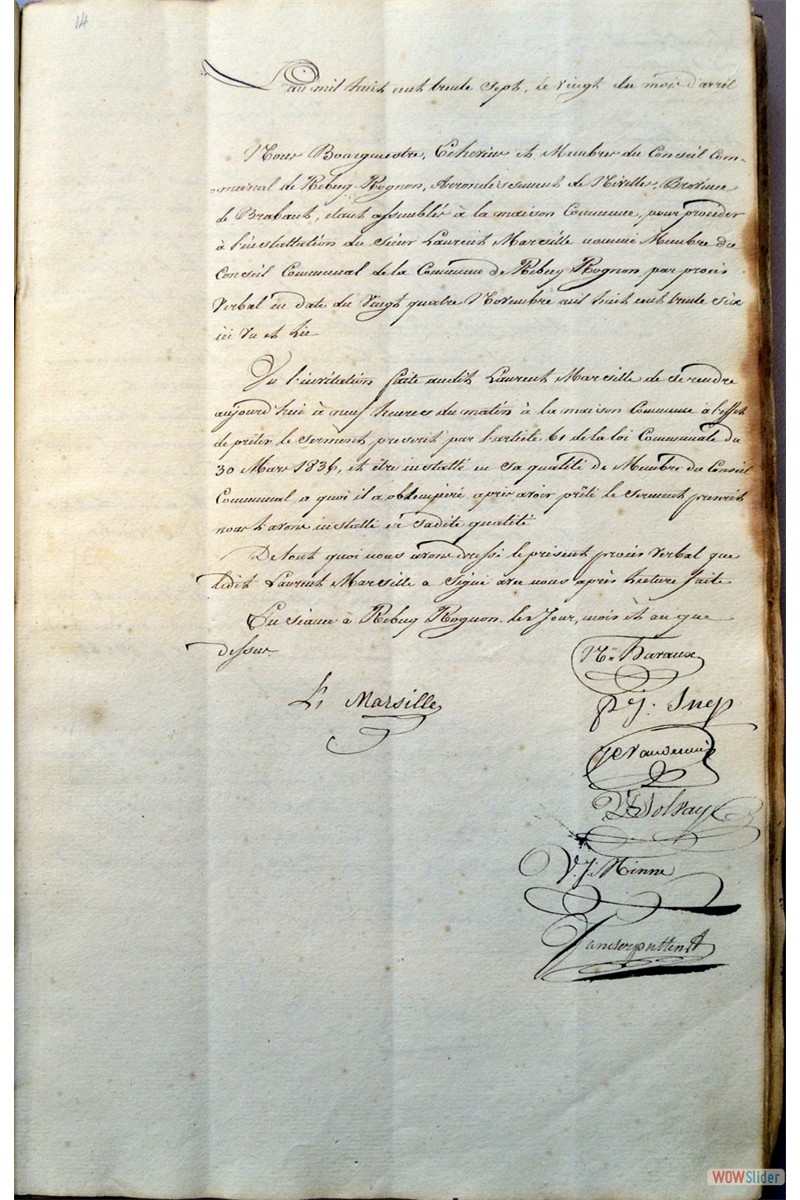 14
L'an mil huit cent trente sept, le vingt du mois d'avril
Nous Bourgmestre, Echevins et Membres du Conseil Com-
-munal de Rebecq-Rognon, Arrondissement de Nivelles, Province
de Brabant, étant assemblés à la maison Commune, pour procéder
à l'installation du Sieur Laurent Marsille nommé Membre du
Conseil Communal de la Commune de Rebecq Rognon, par procès
Verbal en date du Vingt quatre Novembre mil huit cent trente six
ici Vu et Lu
Vu l'invitation faite audit Laurent Marsille de se rendre
aujourd'hui à neuf heures du matin à la maison Commune à l'effet
de prêter le Serment prescrit par l'article 61 de la loi Communale du
30 Mars 1836, et être installé en sa qualité de Membre du Conseil
Communal a quoi il a obtempéré après avoir prêté le serment prescrit
nous l'avons installé en sadite qualité
De tout quoi nous avons dressé le présent procès Verbal que
ledit Laurent Marsille a Signé avec nous après lecture faite
En séance à Rebecq Rognon. les Jour, mois et an que
dessus.
Haraux
L, Marsille
P J.
D Solvay
V. J. Minne
Vanderputten
WOWSlider